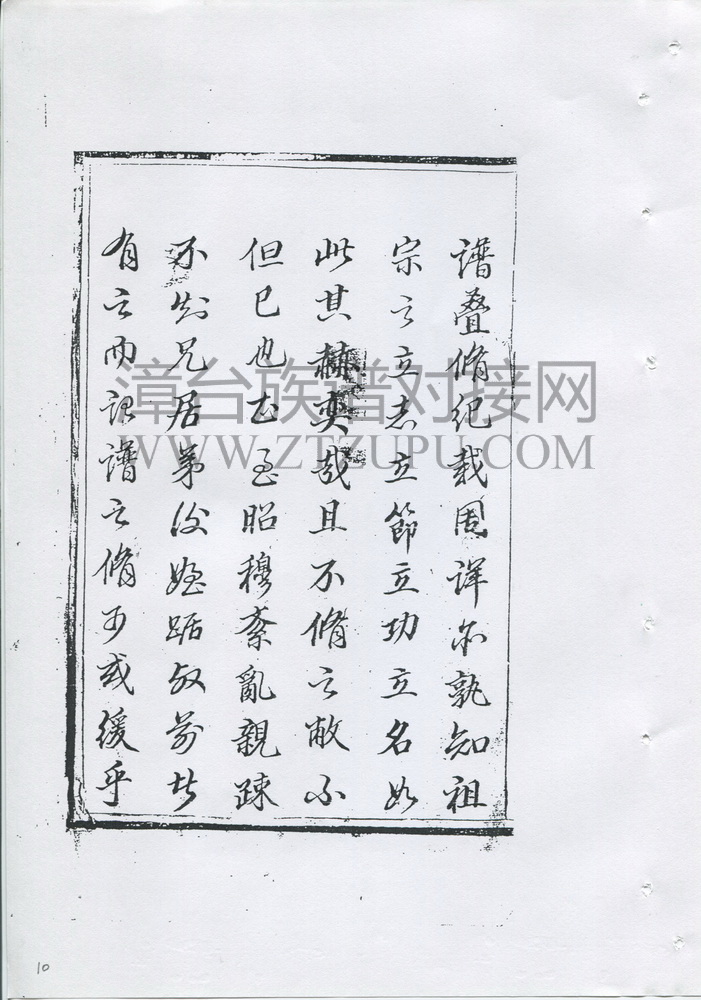 谱叠脩纪载周详尔孰知祖
宗之立志立節立功立名如
此其赫奕哉且不脩之敝不
但已也甚至昭穆紊亂親疎
不别兄居弟後姪踞叔前皆
有之而謂譜之脩可或缓乎
漳台族谱对接网
WWW.ZTZUPU.COM
10